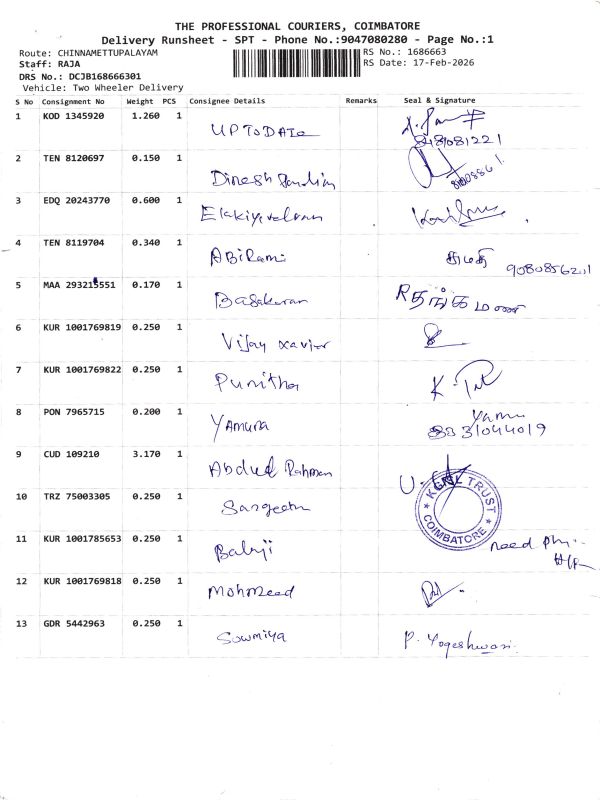 THE PROFESSIONAL COURIERS, COIMBATORE
Delivery Runsheet - SPT - Phone No.:9047080280 - Page No.:1
Route: CHINNAMETTUPALAYAM RS No.: 1686663
Staff: RAJA RS Date: 17-Feb-2026
DRS No.: DCJB168666301
Vehicle: Two Wheeler Delivery
S No Consignment No Weight PCS Consignee Details Remarks Seal & Signature
1 KOD 1345920 1.260 1 UPTODATE
2 TEN 8120697 0.150 1 Dinesh
3 EDQ 20243770 0.600 1
4 TEN 8119704 0.340 1 ABiRami
5 MAA 293215551 0.170 1 Baskaran
6 KUR 1001769819 0.250 1 Vijay xavier
7 KUR 1001769822 0.250 1 Punitha K.
8 PON 7965715 0.200 1 YAMUNA Yamu
9 CUD 109210 3.170 1 Abdul Rahman U.
10 TRZ 75003305 0.250 1 Sangeetha TRUST COIMBATORE
11 KUR 1001785653 0.250 1 Balaji need
12 KUR 1001769818 0.250 1
13 GDR 5442963 0.250 1 Sowmiya P. Yogeshwari